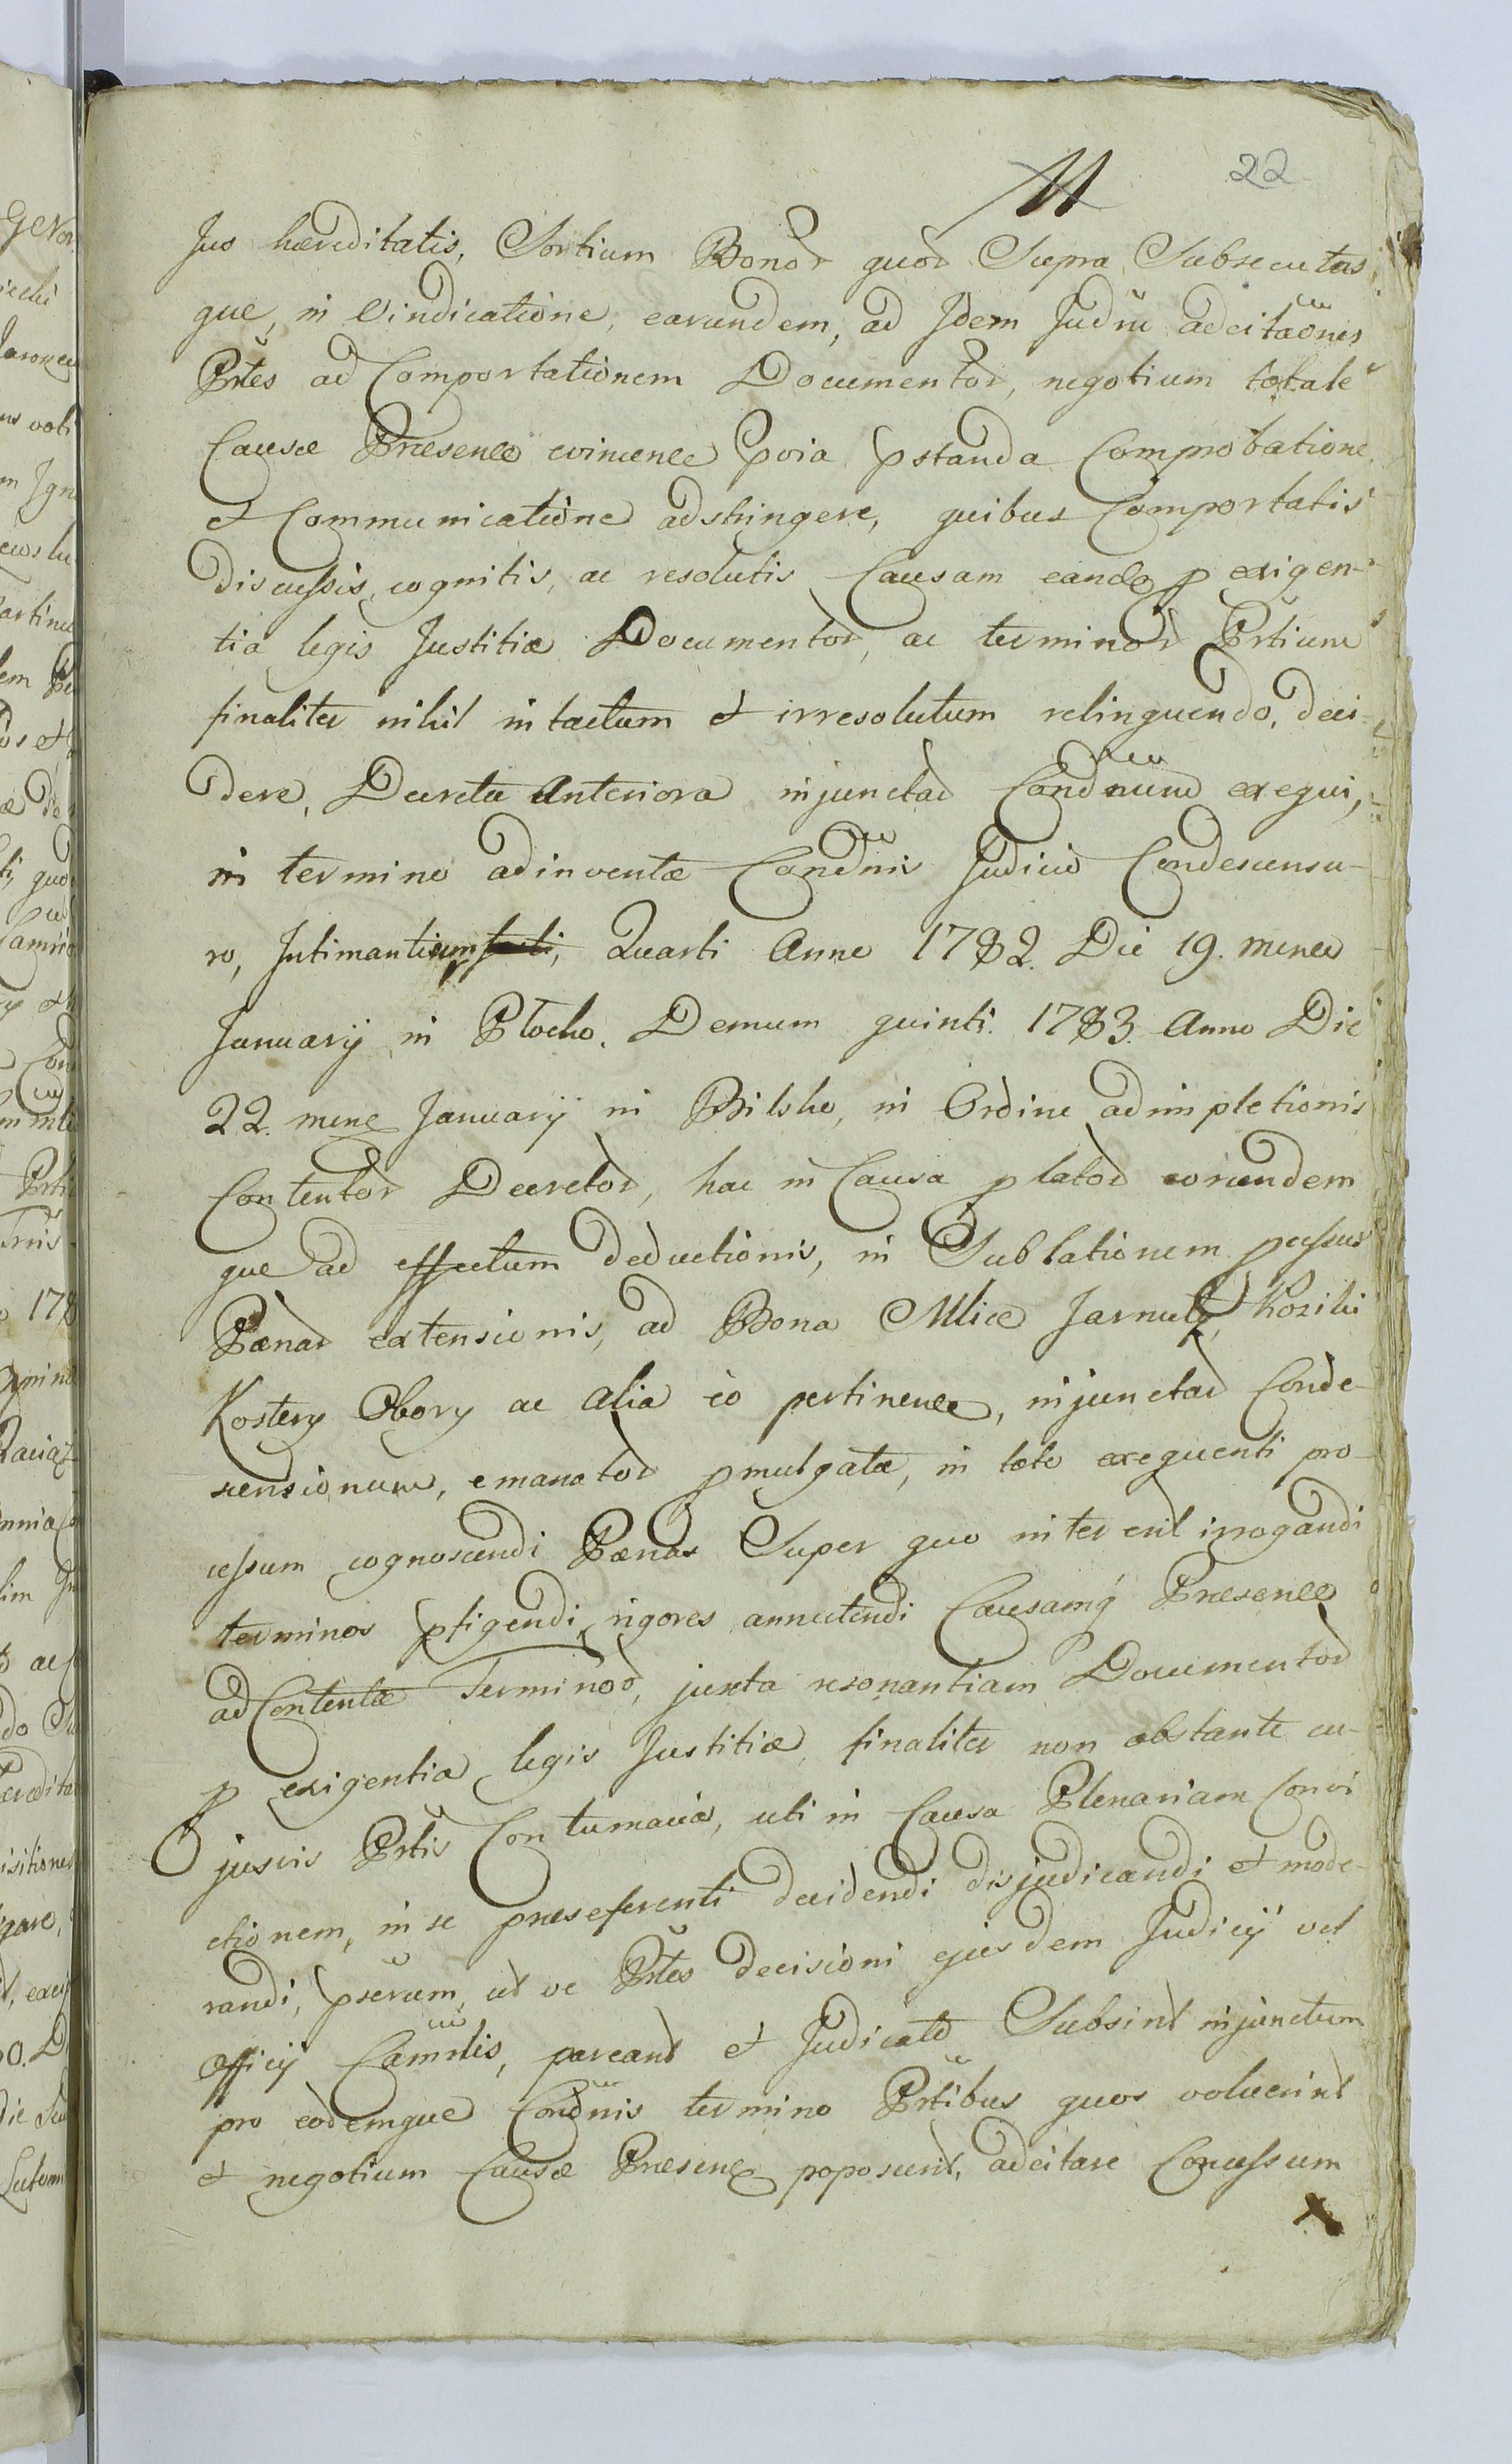 22
Jus hæreditatis, Sortium Bonor quor Supra, Subsecutas,
que, in Vindicatione, earundem, ad Jdem Judiu adcitaōnes
Prtes ad Comportationem Documentor, negotium totale
Causæ Præsenē evincenē pvia pstanda Comprobatione
et Communicatione adstringere, quibus Comportatis
discussis, cognitis, ac resolutis, Causam eandē p exigen-
tia legis Justitiæ Documentor, ac terminor Prtium
finaliter nihil intactum et irresolutum relinquendo, deci-
dere, Decreta Anteriora injunctar Condnum exequi,
in termino adinventæ Condnis Judicio Condescensu-
ro, Intimantium, Quarti Anno 1782. Die 19. mense
Januarij in Płocko. Demum quinti 1783. Anno Die
22. mens Januarij in Bilsko, in Ordine adimpletionis
Contentor Decretor, hac in Causa p lator eorundem
que ad effectum deductionis, in Sublationem pcussus
Pænar extensionis, ad Bona Mlice Jarnuty, Koziki
Kostery Obory ac alia eo pertinenē, injunctar Conde-
scensionum, emanator pmulgatæ, in toto exequenti pro-
cessum cognoscendi Pænas Super quo inter erit irrogandi
terminos pfigendi, rigores annectendi Causamq Præsenē
ad Contenta Terminor, juxta resonantiam Documentor
p exigentia legis Justitiæ, finaliter non obstante cu-
jusvis Prtis Contumacia, uti in Causa Plenariam Convi
ctionem, in se præseferenti decidendi disjudicandi et mode-
randi, pserum, ut ve Prtes decisioni ejusdem Judicij vel
Officij Camrlis, pareant et Judicato Subsint injunctum
pro eodemque Condnis termino Prtibus quos voluerint
et negotium Causæ Præsenē poposcerit, adcitare Concessum